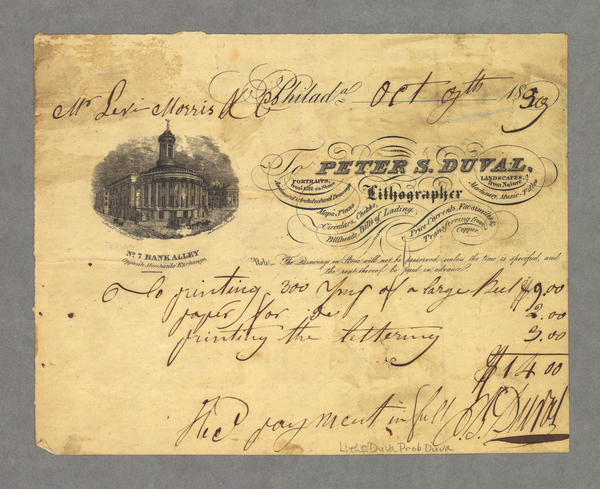 Philada Oct 9th 1839
Mr Levi Morris & Co
To PETER S. DUVAL,
PORTRAITS,
LANDSCAPES,
from Nature,
Lithographer
Machinery, Music-Titles
Maps, Plans
Circulars, Checks,
Billheads, Bills of Lading,
Price Currents, Facsimiles &
Transferring from
Copper.
No. 7 BANK ALLEY
Opposite Merchants' Exchange.
Note. The Drawings on Stone will not be preserved, unless the time is specified, and
the rent thereof be paid in advance.
To printing 300 of a large $9.00
paper for do 2.00
printing the lettering 3.00
$14.00
Recd payment in full P. S. Duval
Litho Duva Prob Duva